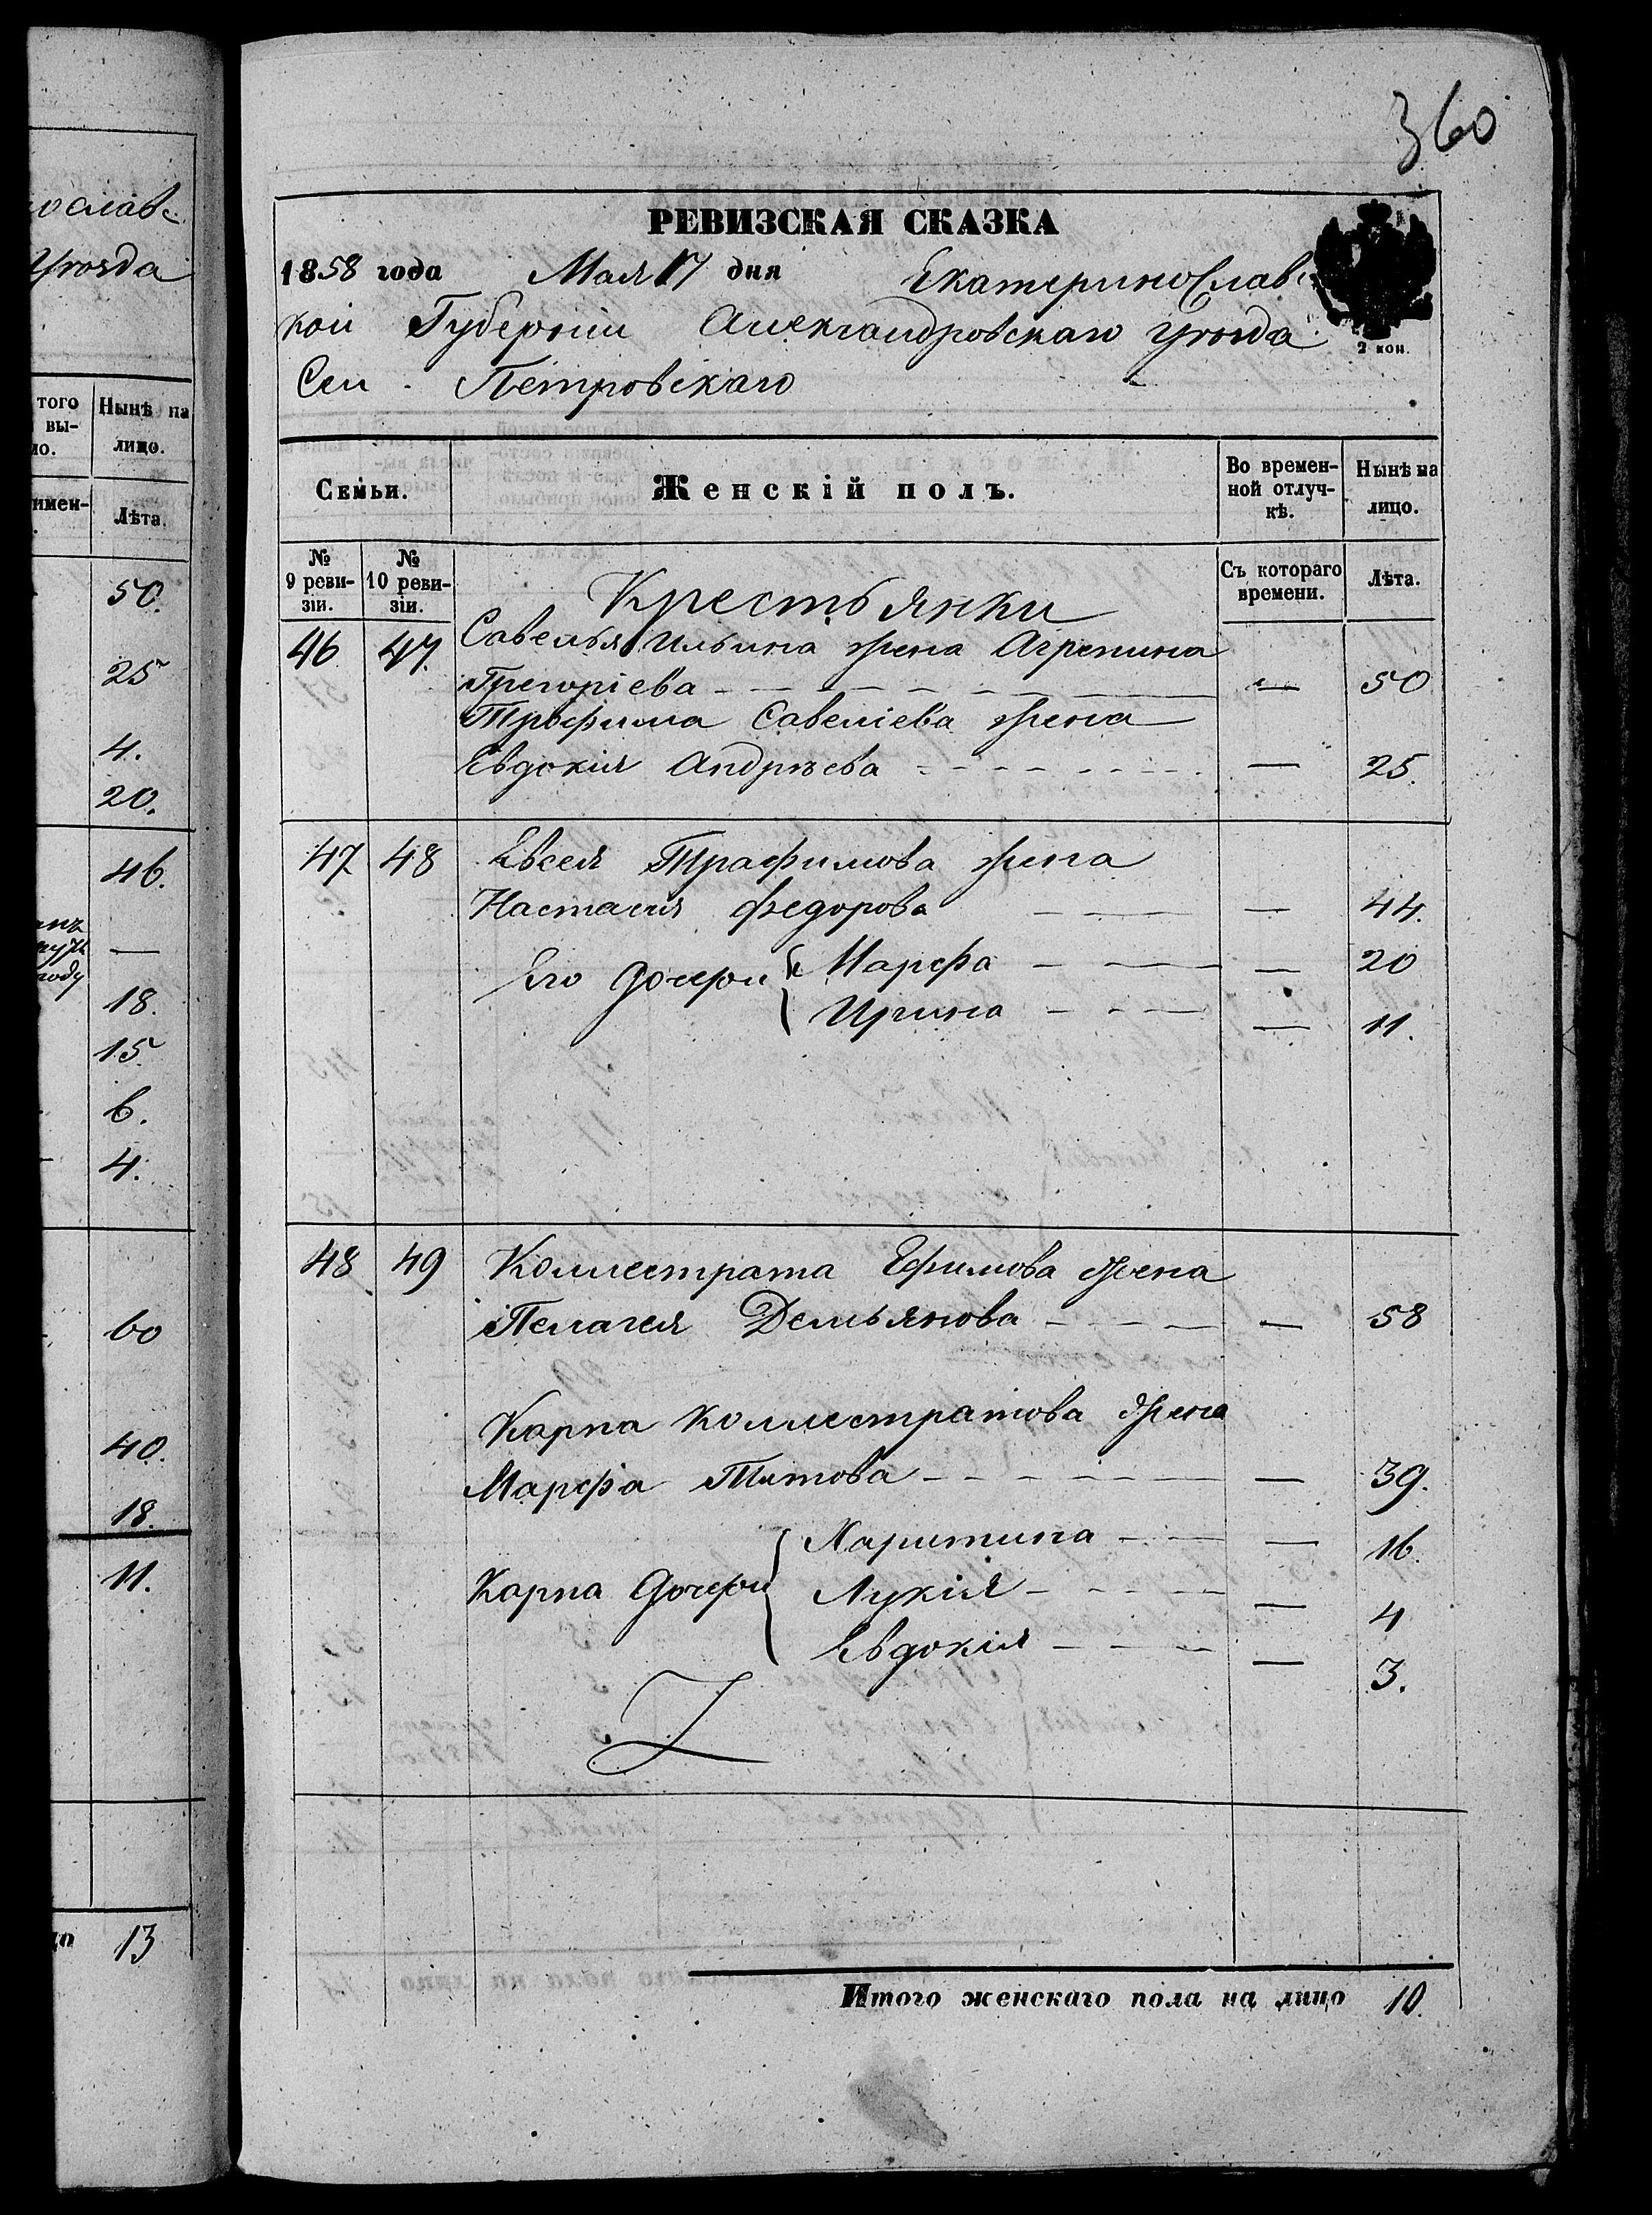 ославс
Уѣзда
того
вы-
Нынѣ на
лицо.
имен-
Лѣта.
50.
25
4.
20.
46.
году
—
18.
15.
6.
4.
60
40.
18.
11.
13
360
РЕВИЗСКАЯ СКАЗКА
1858 года Мая 17 дня Екатеринославс
кой Губерніи Александровскаго Уѣзда
2 коп.
Сел. Петровскаго
Семьи. Женскій полъ. Во времен-ной отлуч-кѣ. Нынѣ на лицо.
№ 9 реви-зіи. № 10 реви-зіи. Съ котораго времени. Лѣта.
Крестьянки
46 47. Савелья Ильина жена Агрепина
Грегоріева — — 50
Трофима Савеліева жена
Евдокія Андрѣева — — 25.
47 48 Евсея Трафимова жена
Настасия Федорова — — 44.
Его дочери { Марфа — — 20
Ирина — — 11.
48 49 Коллестрата Ефимова жена
Пелагея Демьянова — — 58
Карпа Коллестратова жена
Марфа Титова — — 39.
Харитина — — 16.
Карпа дочери { Лукія — — 4
Евдокія — — 3.
Итого женскаго пола на лицо 10.